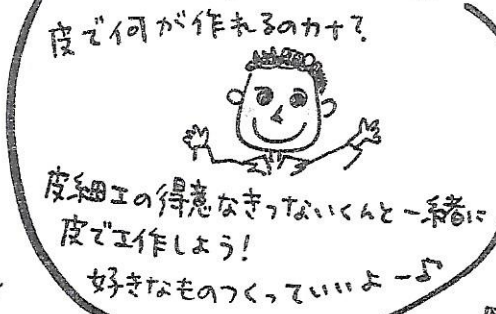 皮で何が作れるのカナ?
皮細工の得意なきっないくんと一緒に
皮で工作しよう!
好きなものつくっていいよー♪